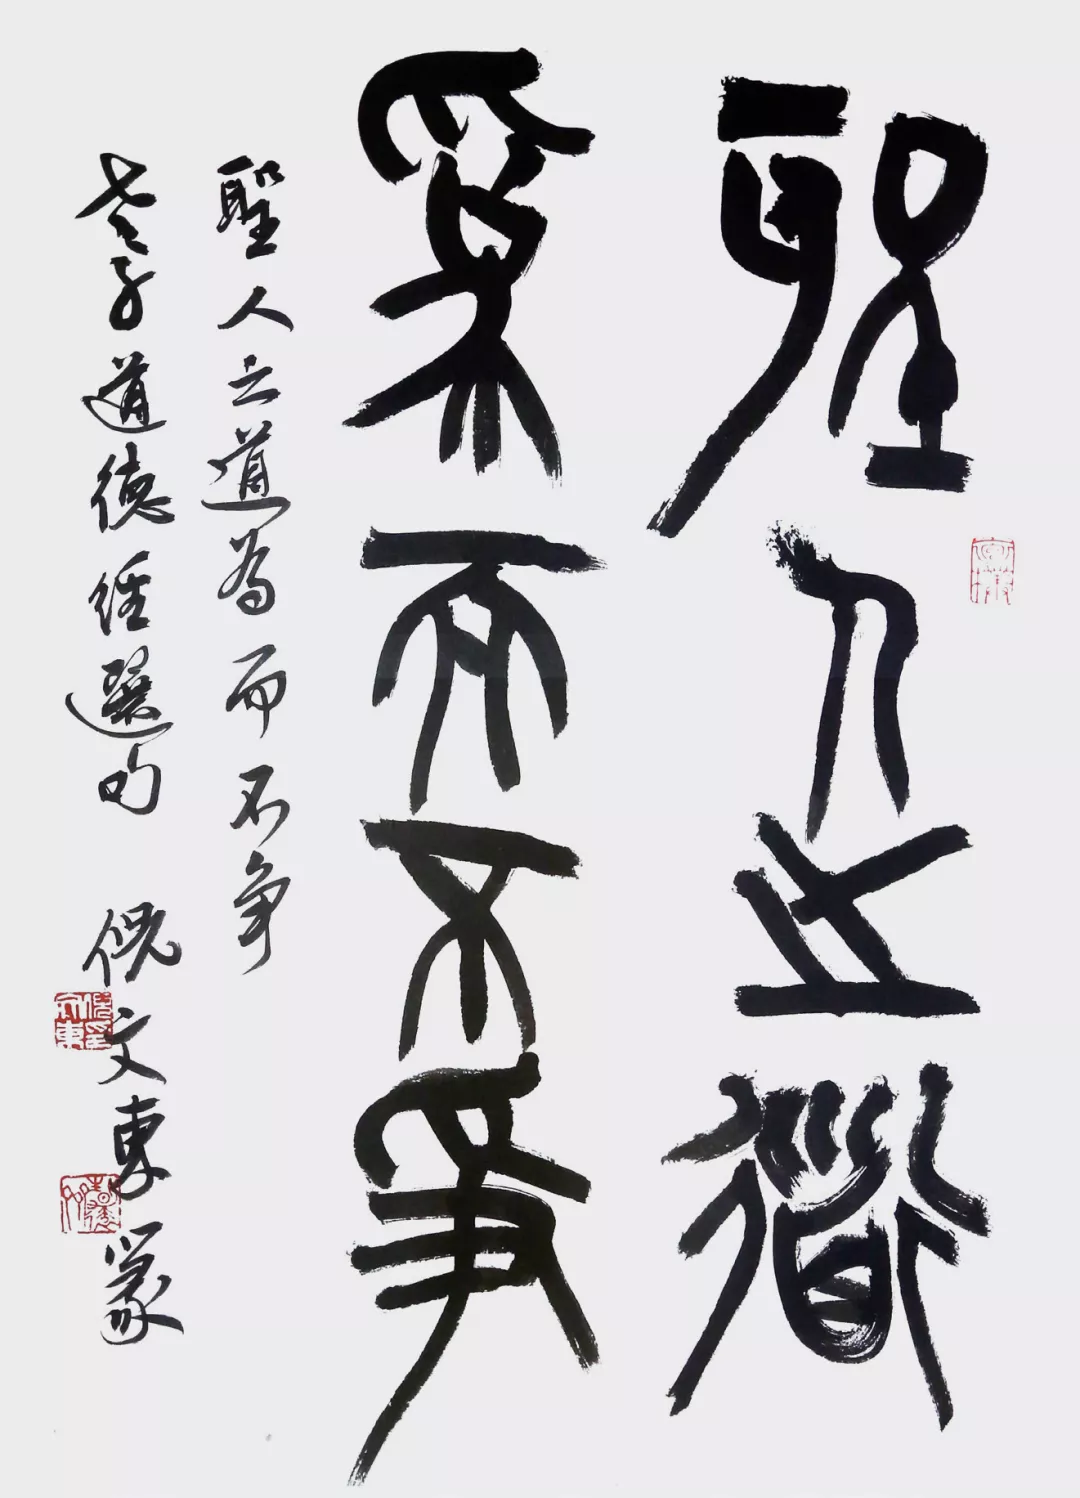 聖人之道
為而不爭
聖人之道為而不爭
老子道德經選句 倪文東篆